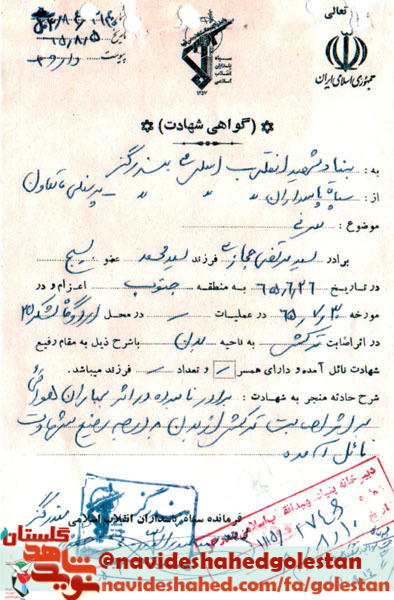 تعالی
جمهوری اسلامی ایران
سپاه پاسداران انقلاب اسلامی
شماره
تاریخ ۶۵/۸/۵
پیوست دارد
(گواهی شهادت)
به : بنیاد شهید انقلاب اسلامی بندرگز
از : سپاه پاسداران " " " پرسنلی تعاون
موضوع : معرفی
برادر سید مرتضی حجازی فرزند سید محمد عضو بسیج
در تاریخ ۶۵/۶/۲۶ به منطقه جنوب اعزام و در
مورخه ۶۵/۷/۳۰ در عملیات — در محل اردوگاه لشکر ۲۵
در اثر اصابت ترکش به ناحیه بدن باشرح ذیل به مقام رفیع
شهادت نائل آمده و دارای همسر — و تعداد — فرزند میباشد.
شرح حادثه منجر به شهادت : برادر نامبرده در اثر بمباران هوائی
بر اثر اصابت ترکش از بدن به درجه رفیع شهادت
نائل آمده
فرمانده سپاه پاسداران انقلاب اسلامی بندرگز
دبیرخانه بنیاد شهید انقلاب اسلامی
شماره
تاریخ
نوید شاهد گلستان
@navideshahedgolestan
navideshahed.com/fa/golestan